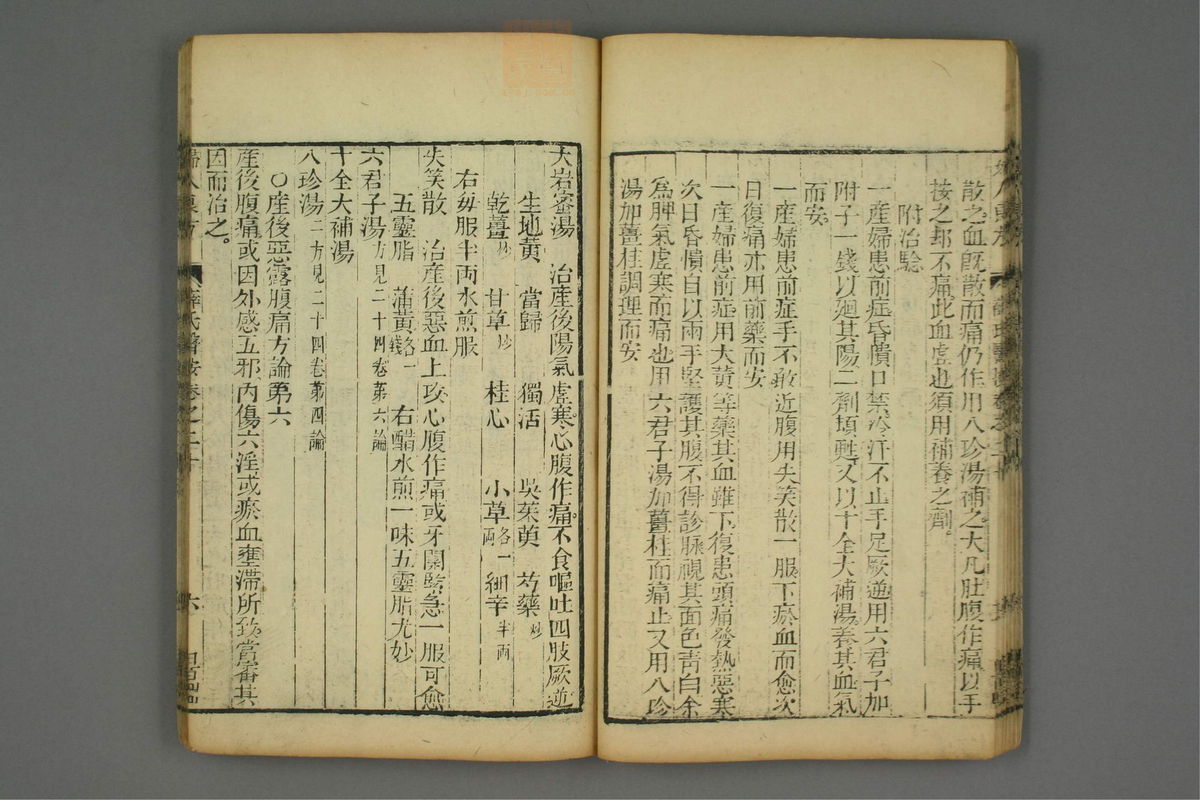 散之血既散而痛仍作用八珍湯補之大凡肚腹作痛以手
按之却不痛此血虛也須用補養之劑。
附治驗
一產婦患前症昏憒口禁冷汗不止手足厥逆用六君子加
附子一錢以廻其陽二劑頓甦又以十全大補湯養其血氣
而安
一產婦患前症手不敢近腹用失笑散一服下瘀血而愈次
日復痛亦用前藥而安
一產婦患前症用大黃等藥其血雖下復患頭痛發熱惡寒
次日昏憒自以兩手堅護其腹不得診脉視其面色青白余
爲脾氣虛寒而痛也用六君子湯加薑桂而痛止又用八珍
湯加薑桂調理而安
大岩蜜湯 治產後陽氣虛寒心腹作痛不食嘔吐四肢厥逆
生地黃 當歸 獨活 吳茱萸 芍藥炒
乾薑炒 甘草炒 桂心 小草各一兩 細辛半兩
右每服半兩水煎服
失笑散 治產後惡血上攻心腹作痛或牙關緊急一服可愈
五靈脂 蒲黃各一錢 右醋水煎一味五靈脂尤妙
六君子湯方見二十四卷第六論
十全大補湯
八珍湯二方見二十四卷第四論
○產後惡露腹痛方論第六
產後腹痛或因外感五邪內傷六淫或瘀血壅滯所致當審其
因而治之。
婦人良方 薛氏醫按卷之二十 六